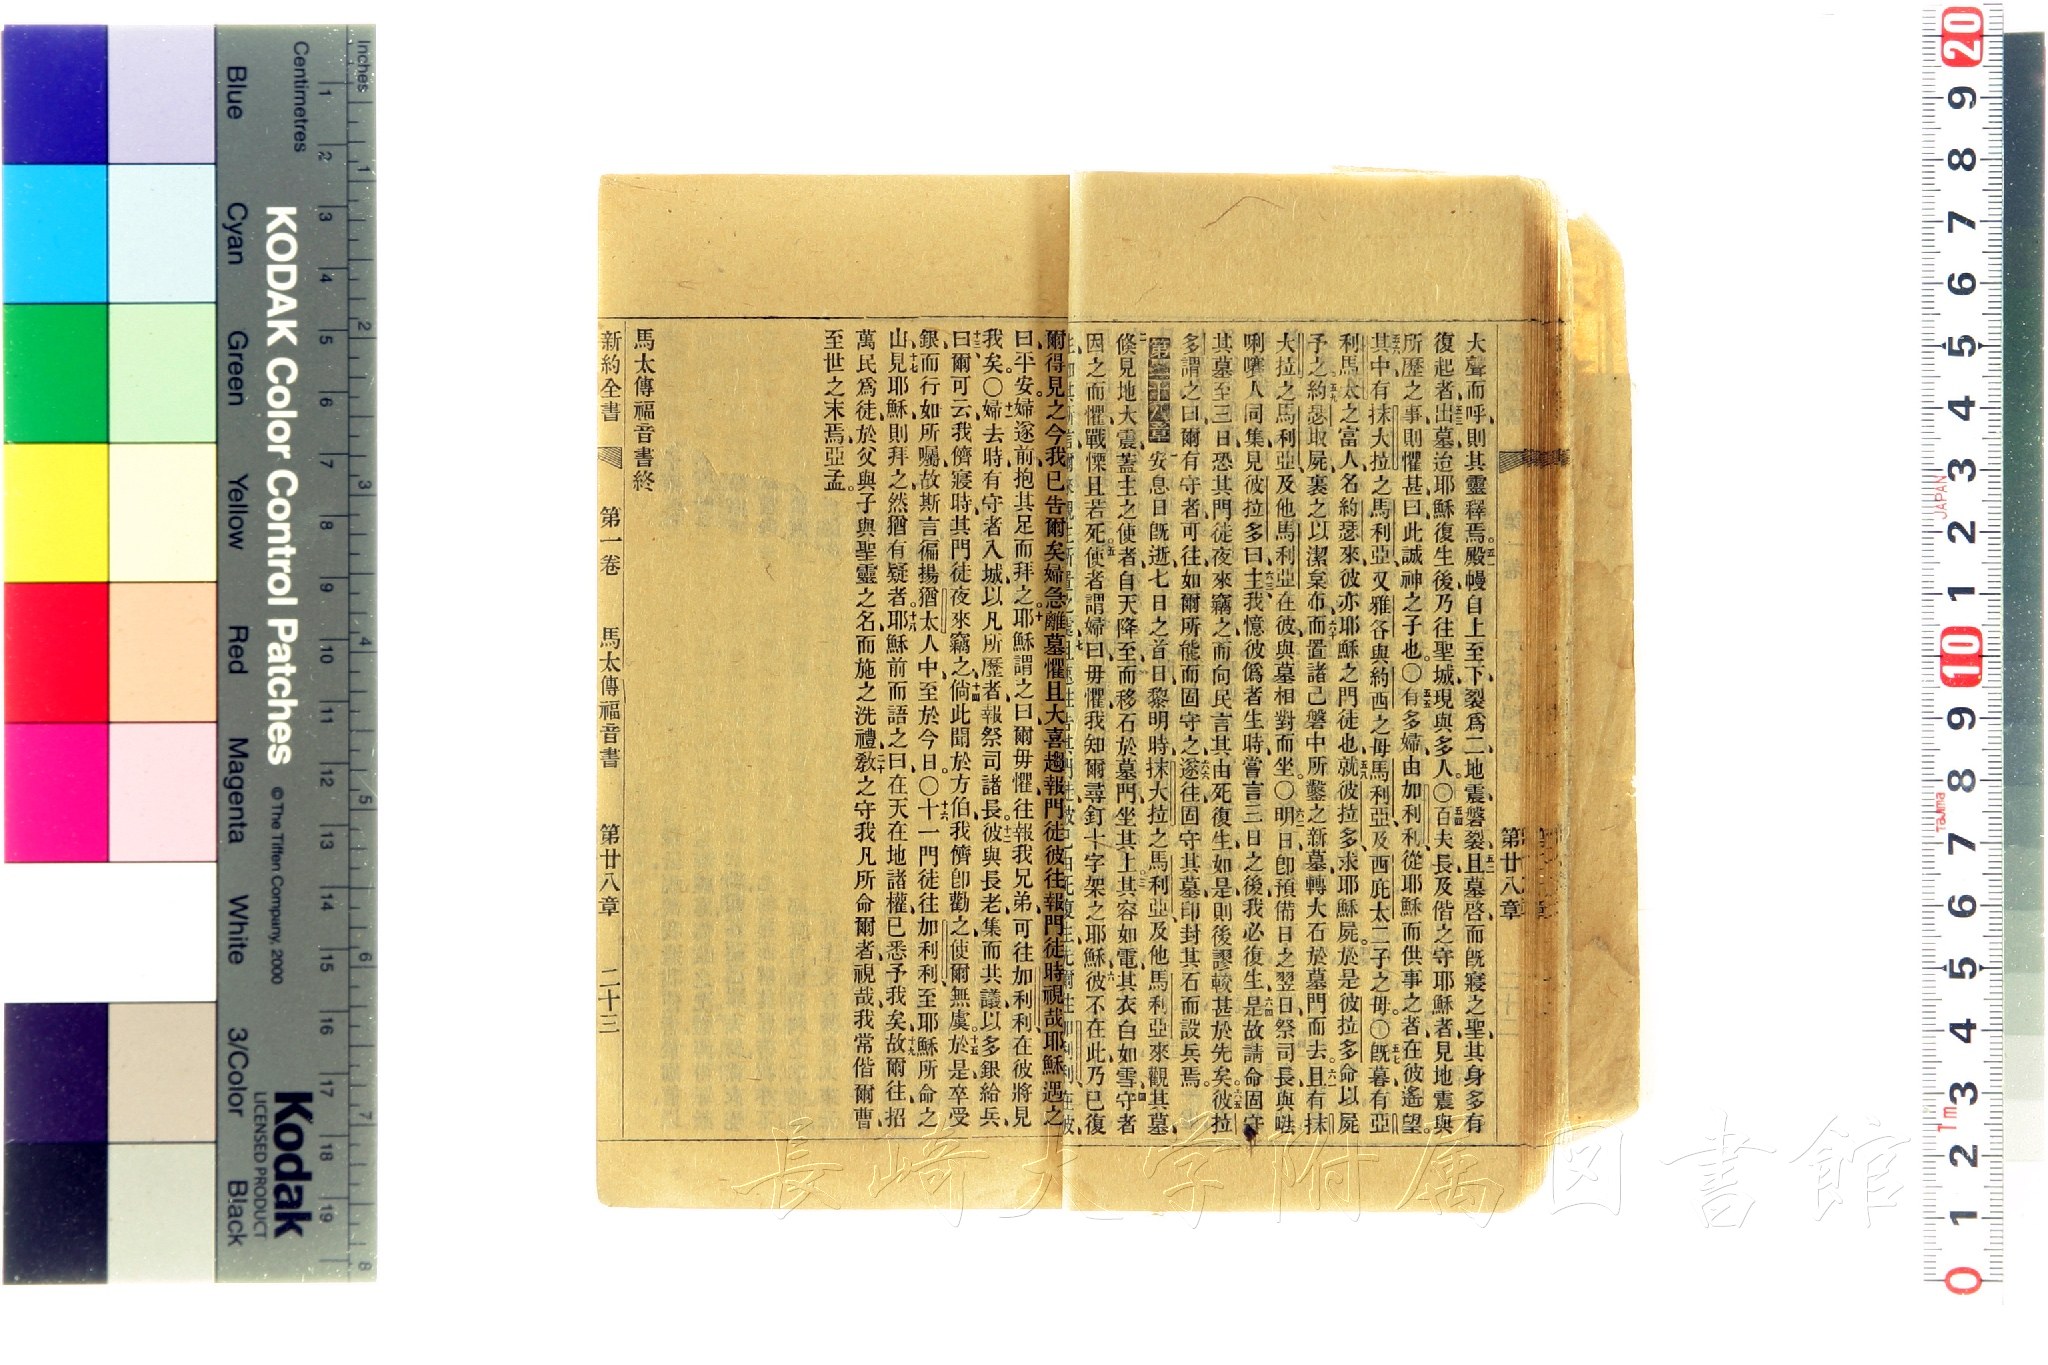 大聲而呼則其靈釋焉殿幔自上至下裂爲二地震磐裂且墓啓而旣寢之聖其身多有
復起者出墓迨耶穌復生後乃往聖城現與多人〇百夫長及偕之守耶穌者見地震與
所歷之事則懼甚曰此誠神之子也〇有多婦由加利利從耶穌而供事之者在彼遙望
其中有抹大拉之馬利亞又雅各與約西之毋馬利亞及西庇太二子之毋〇旣暮有亞
利馬太之富人名約瑟來彼亦耶穌之門徒也就彼拉多求耶穌屍於是彼拉多命以屍
予之約瑟取屍裹之以潔枲布而置諸己磐中所鑿之新墓轉大石於墓門而去且有抹
大拉之馬利亞及他馬利亞在彼與墓相對而坐〇明日卽預備日之翌日祭司長與𠵽
唎㘔人同集見彼拉多曰主我憶彼僞者生時嘗言三日之後我必復生是故請命固守
其墓至三日恐其門徒夜來竊之而向民言其由死復生如是則後謬較甚於先矣彼拉
多謂之曰爾有守者可往如爾所能而固守之遂往固守其墓印封其石而設兵焉
第二十八章 安息日旣逝七日之首日黎明時抹大拉之馬利亞及他馬利亞來觀其墓
倐見地大震蓋主之使者自天降至而移石於墓門坐其上其容如電其衣白如雪守者
因之而懼戰慄且若死使者謂婦曰毋懼我知爾尋釘十字架之耶穌彼不在此乃已復
爾得見之今我已告爾矣婦急離墓懼且大喜趨報門徒彼往報門徒時視哉耶穌遇之
曰平安婦遂前抱其足而拜之耶穌謂之曰爾毋懼往報我兄弟可往加利利在彼將見
我矣〇婦去時有守者入城以凡所歷者報祭司諸長彼與長老集而共議以多銀給兵
曰爾可云我儕寢時其門徒夜來竊之倘此聞於方伯我儕卽勸之使爾無虞於是卒受
銀而行如所囑故斯言徧揚猶太人中至於今日〇十一門徒往加利利至耶穌所命之
山見耶穌則拜之然猶有疑者耶穌前而語之曰在天在地諸權已悉予我矣故爾往招
萬民爲徒於父與子與聖靈之名而施之洗禮敎之守我凡所命爾者視哉我常偕爾曹
至世之末焉亞孟
馬太傳福音書終
新約全書 第一卷 馬太傳福音書 第廿八章 二十三
第廿八章
長崎大学附属図書館
KODAK Color Control Patches
© The Tiffen Company, 2000
Kodak
LICENSED PRODUCT
Inches
Centimetres
Blue
Cyan
Green
Yellow
Red
Magenta
White
3/Color
Black
1 2 3 4 5 6 7 8 9 10 11 12 13 14 15 16 17 18 19
1 2 3 4 5 6 7 8
20 9 8 7 6 5 4 3 2 1 10 9 8 7 6 5 4 3 2 1 0
JAPAN
Tajima
Tm